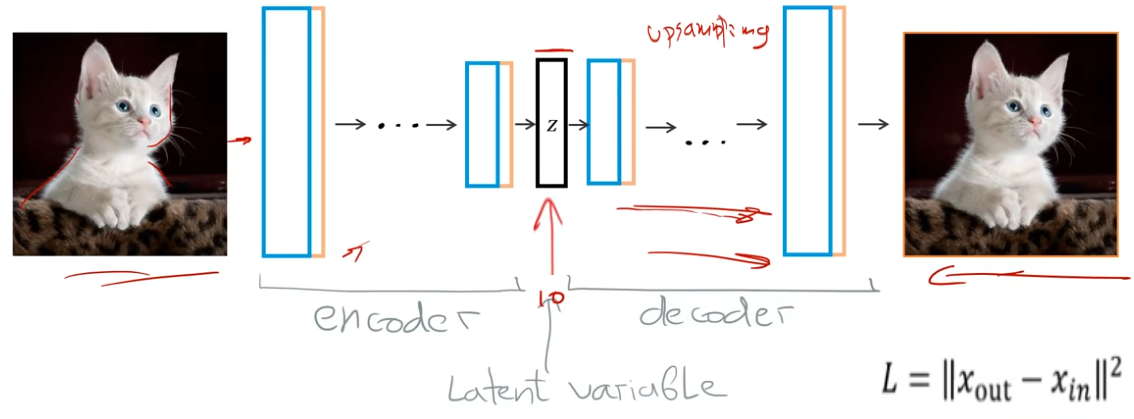 upsampling
z
10
encoder
decoder
Latent variable
L = ||x_out − x_in||²